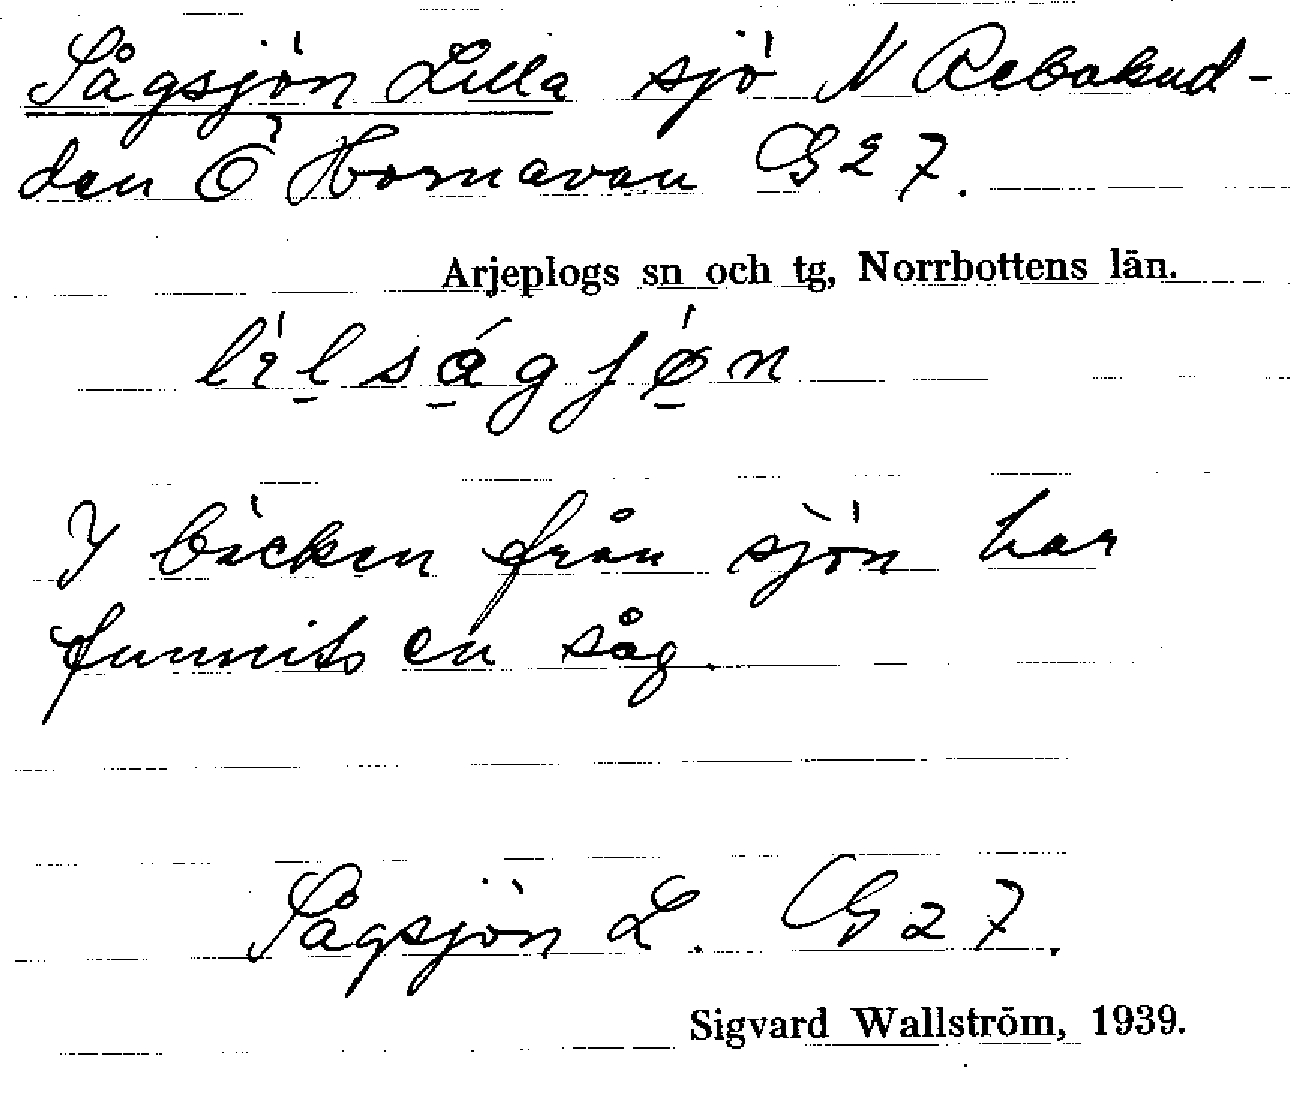 Sågsjön Lilla sjö N Rebakud-
den Ö Hornavan G 27.
Arjeplogs sn och tg, Norrbottens län.
I bäcken från sjön har
funnits en såg.
Sågsjön L. G 27.
Sigvard Wallström, 1939.